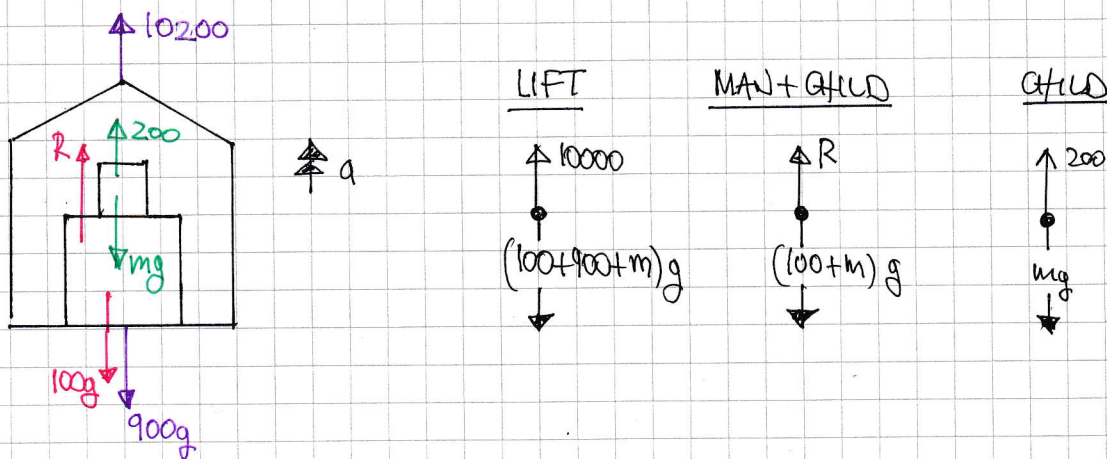 10200
R
200
a
mg
100g
900g
LIFT
10000
(100+900+m)g
MAN+CHILD
R
(100+m)g
CHILD
200
mg